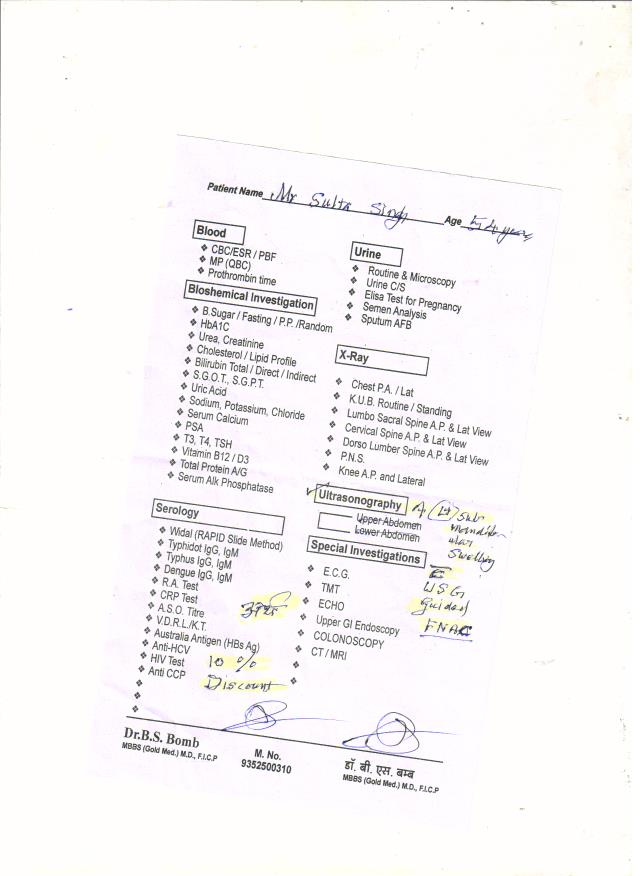 Patient Name Mr Sulta Singh Age 54 years
Blood
❖ CBC/ESR / PBF
❖ MP (QBC)
❖ Prothrombin time
Bioshemical Investigation
❖ B.Sugar / Fasting / P.P. /Random
❖ HbA1C
❖ Urea, Creatinine
❖ Cholesterol / Lipid Profile
❖ Bilirubin Total / Direct / Indirect
❖ S.G.O.T., S.G.P.T.
❖ Uric Acid
❖ Sodium, Potassium, Chloride
❖ Serum Calcium
❖ PSA
❖ T3, T4, TSH
❖ Vitamin B12 / D3
❖ Total Protein A/G
❖ Serum Alk Phosphatase
Serology
❖ Widal (RAPID Slide Method)
❖ Typhidot IgG, IgM
❖ Typhus IgG, IgM
❖ Dengue IgG, IgM
❖ R.A. Test
❖ CRP Test
❖ A.S.O. Titre
❖ V.D.R.L./K.T.
❖ Australia Antigen (HBs Ag)
❖ Anti-HCV
❖ HIV Test
❖ Anti CCP
10 %
Discount
Urine
❖ Routine & Microscopy
❖ Urine C/S
❖ Elisa Test for Pregnancy
❖ Semen Analysis
❖ Sputum AFB
X-Ray
❖ Chest P.A. / Lat
❖ K.U.B. Routine / Standing
❖ Lumbo Sacral Spine A.P. & Lat View
❖ Cervical Spine A.P. & Lat View
❖ Dorso Lumber Spine A.P. & Lat View
❖ P.N.S.
❖ Knee A.P. and Lateral
Ultrasonography
Upper Abdomen
Lower Abdomen
(Lt) Sub
mandibu
lar
Swelling
USG
Guided
FNAC
Special Investigations
❖ E.C.G.
❖ TMT
❖ ECHO
❖ Upper GI Endoscopy
❖ COLONOSCOPY
❖ CT / MRI
Dr.B.S. Bomb
MBBS (Gold Med.) M.D., F.I.C.P
M. No.
9352500310
डॉ. बी. एस. बम्ब
MBBS (Gold Med.) M.D., F.I.C.P